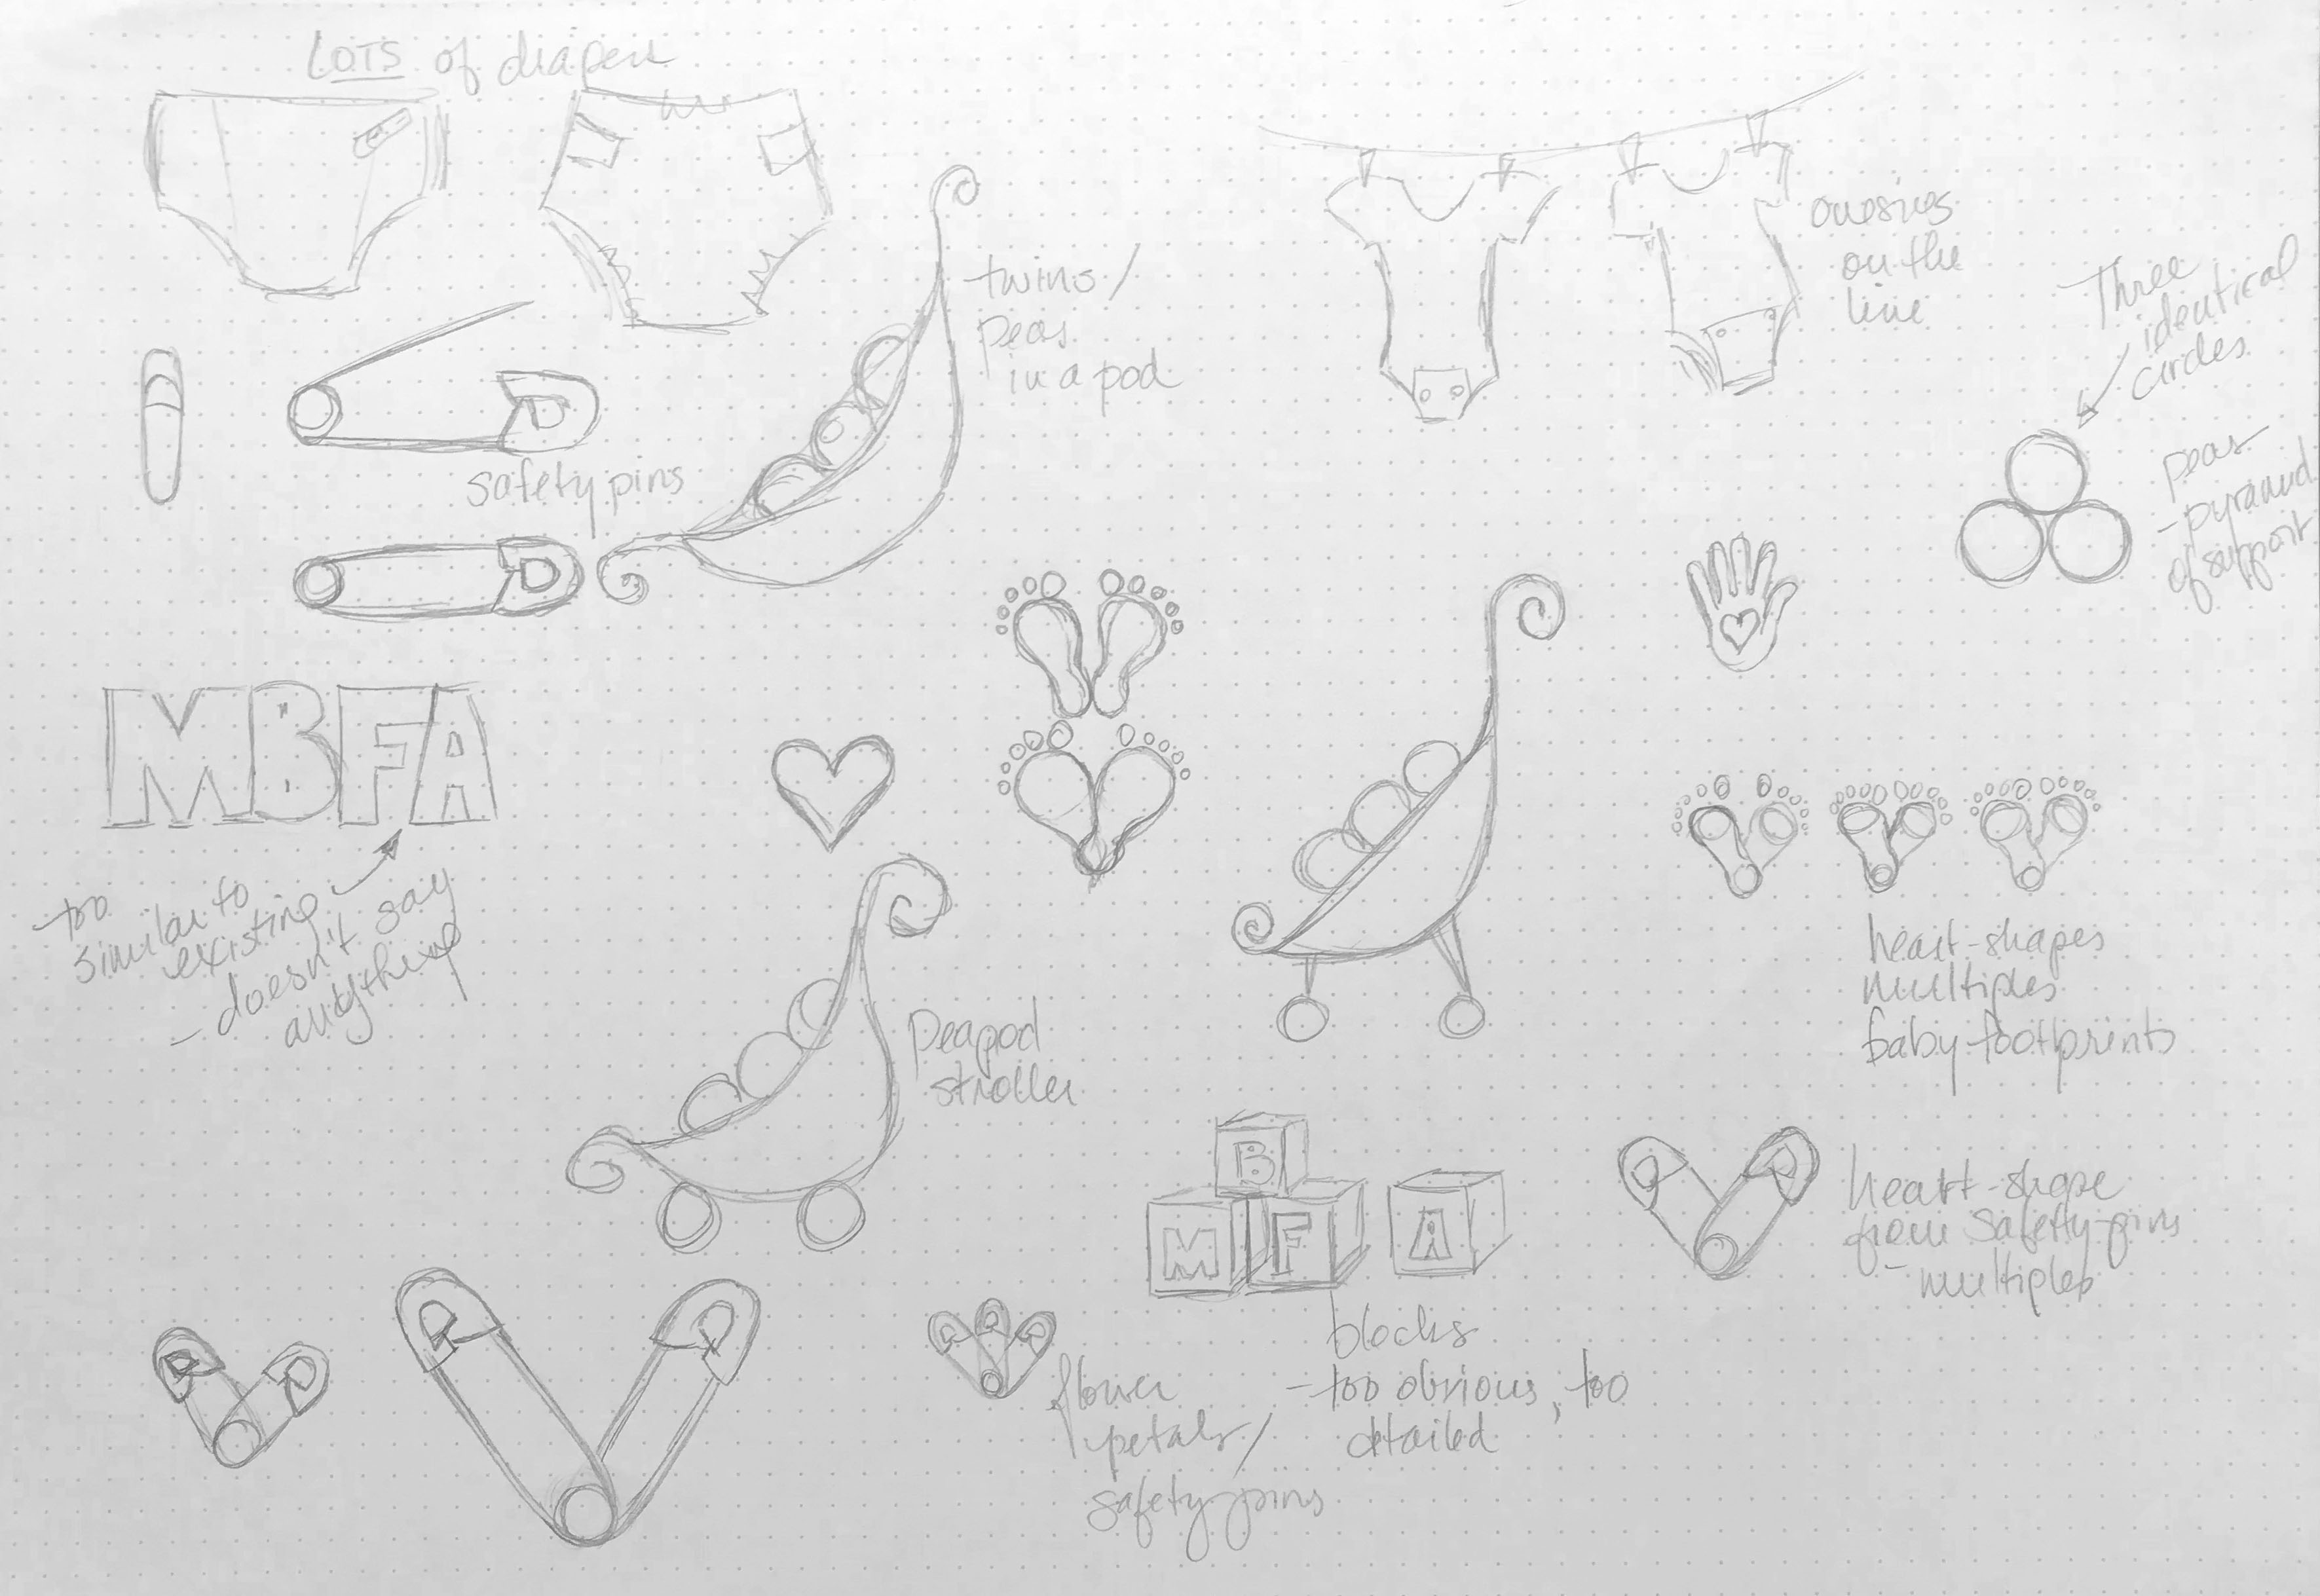 LOTS of diapers
twins/
peas
in a pod
onesies
on the
line
Three
identical
circles
peas
- pyramid
of support
safety pins
MBFA
- too
similar to
existing
- doesn't say
anything
heart-shapes
multiples
baby footprints
Peapod
stroller
B
M F A
blocks
- too obvious, too
detailed
heart-shape
from safety pins
- multiples
flower
petals/
safety pins